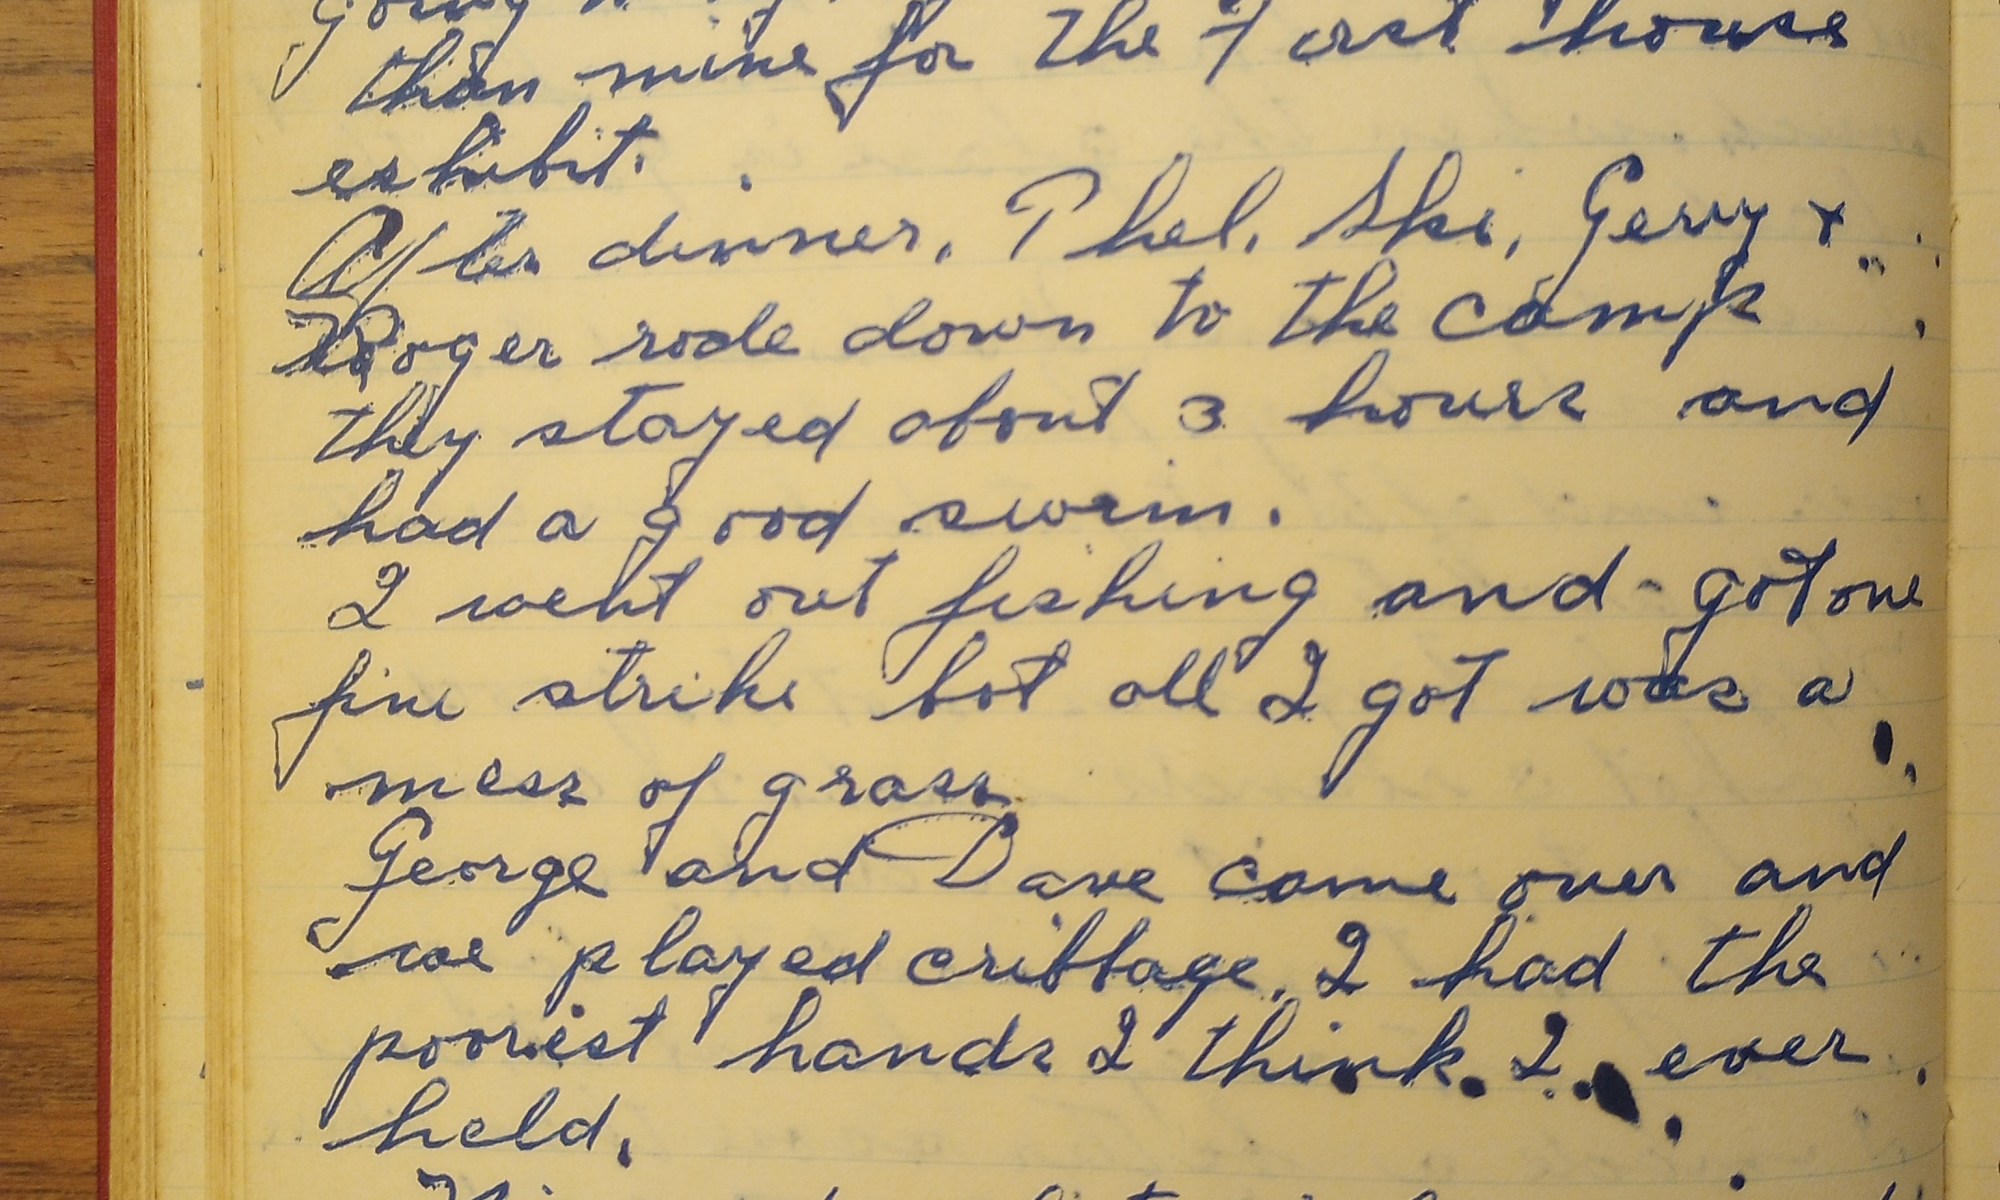 going
than mine for the First house
exhibit.
After dinner, Phel, Ski, Gerry +
Roger rode down to the camp
they stayed about 3 hours and
had a good swim.
I went out fishing and - got one
fine strike but all I got was a
mess of grass
George and Dave came over and
we played cribbage. I had the
poorest hands I think I ever
held.